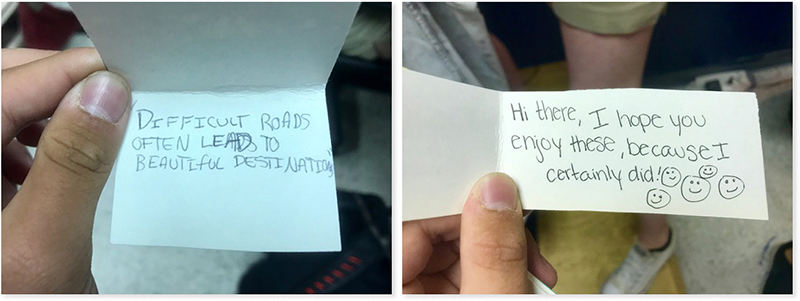 DIFFICULT ROADS
OFTEN LEADS TO
BEAUTIFUL DESTINATIONS
Hi there, I hope you
enjoy these, because I
certainly did!